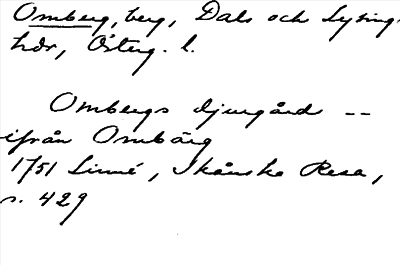 Omberg, berg, Dals och Lysings
hdr, Österg. l.
Ombergs djurgård --
ifrån Ombärg
1751 Linné, Skånska Resa,
s. 429